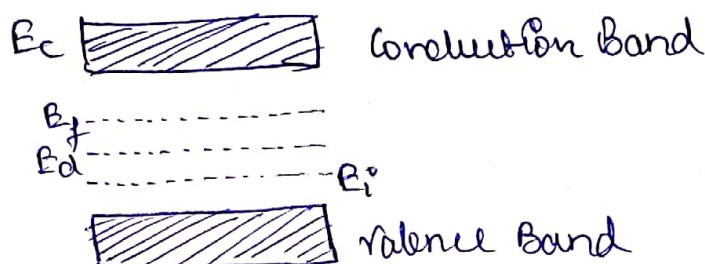 Ec Conduction Band
Ef
Ed
Ei
Valence Band